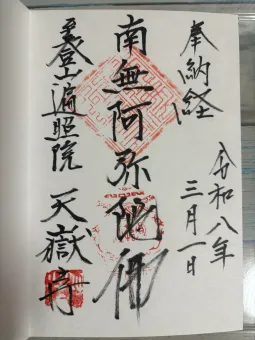 奉納経
令和八年
三月一日
南無阿弥陀佛
義登山遍照院
天嶽寺